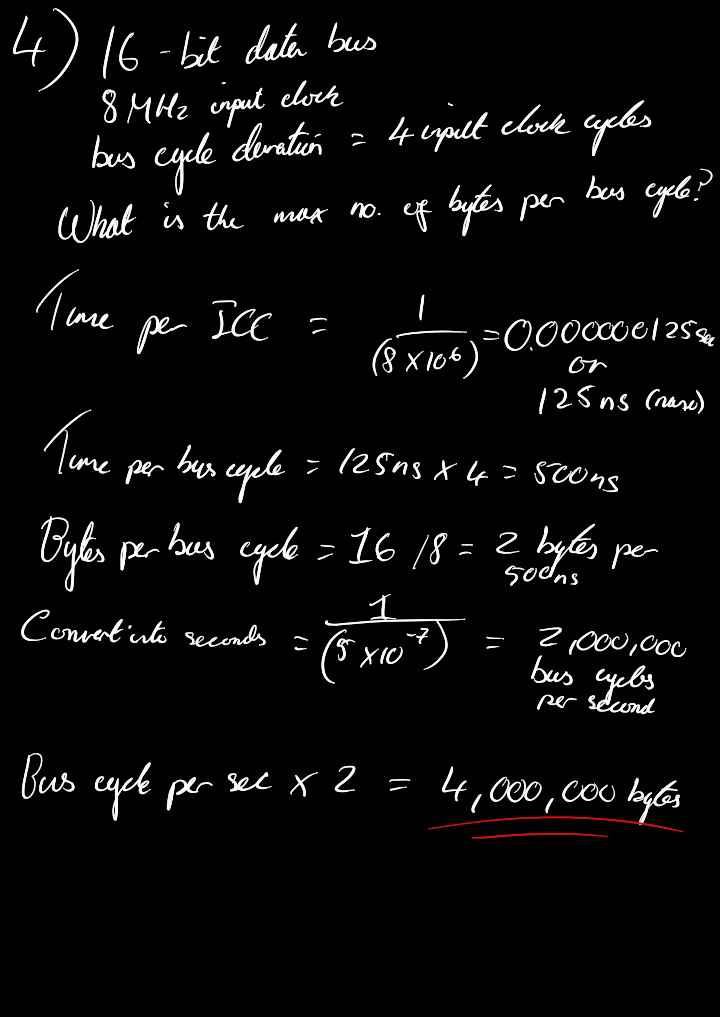 4) 16-bit data bus
8 MHz input clock
bus cycle duration = 4 input clock cycles
What is the max no. of bytes per bus cycle?
Time per ICC = 1/(8 × 10⁶) = 0.000000125 sec
or
125ns (nano)
Time per bus cycle = 125ns × 4 = 500ns
Bytes per bus cycle = 16 / 8 = 2 bytes per
500ns
Convert into seconds = 1/(5 × 10⁻⁷) = 2,000,000
bus cycles
per second
Bus cycle per sec × 2 = 4,000,000 bytes